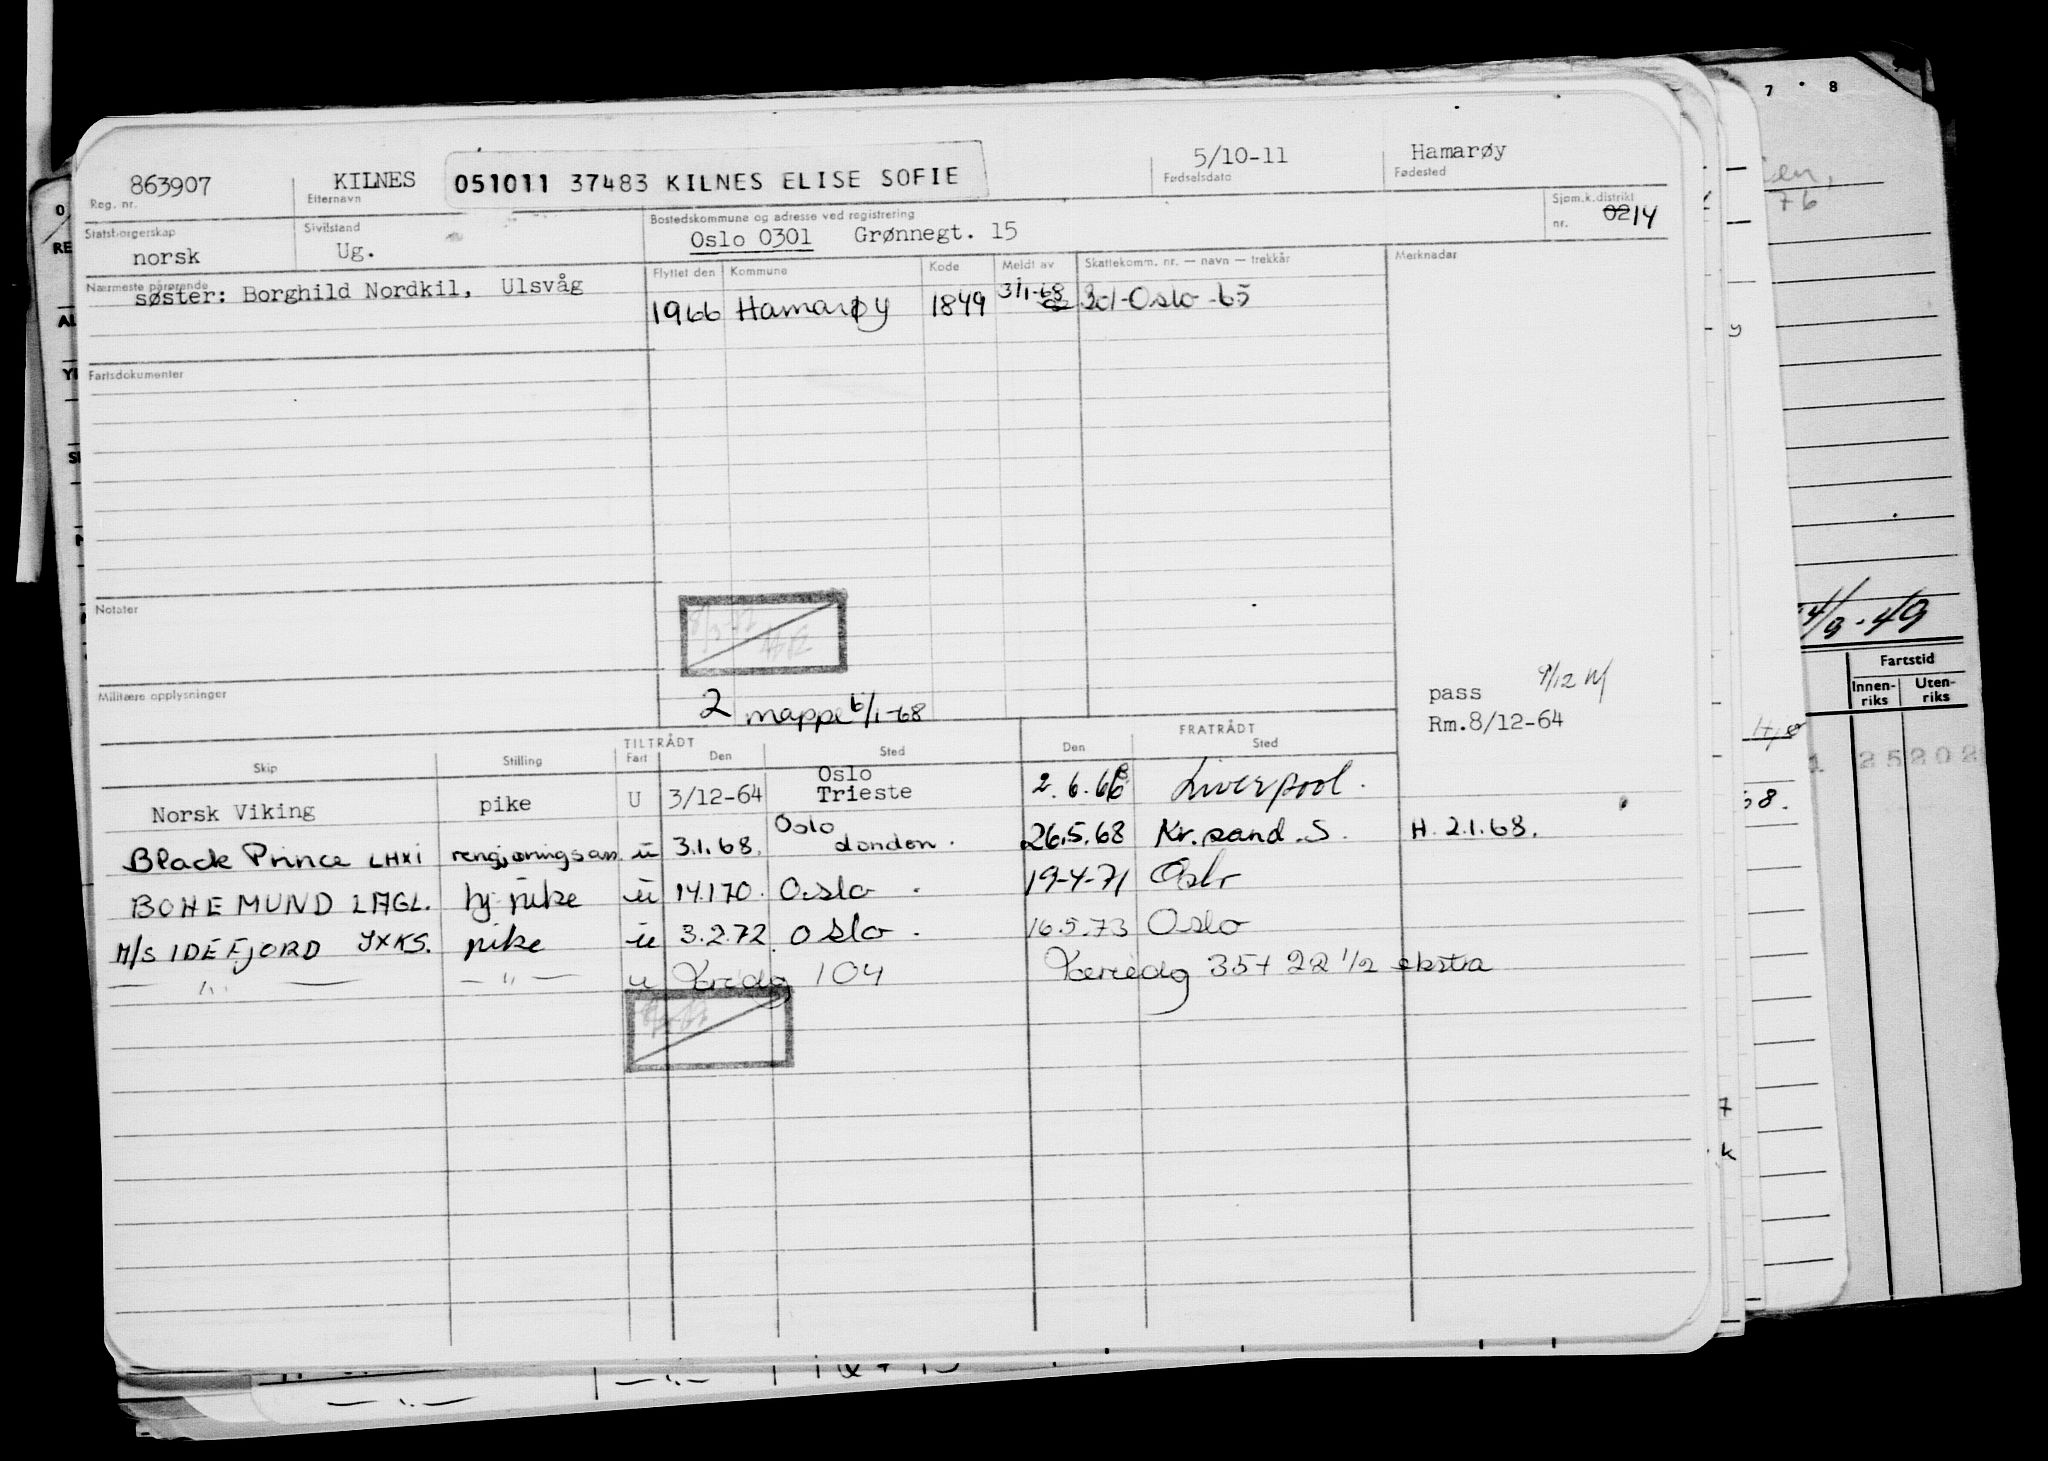 863907 KILNES 051011 37483 KILNES ELISE SOFIE 5/10-11 Hamarøy
Reg. nr. Etternavn Fødselsdato Fødested
Statsborgerskap Sivilstand Bostedskommune og adresse ved registrering Sjøm.k.distrikt
norsk Ug. Oslo 0301 Grønnegt. 15 nr. 0214
Nærmeste pårørende Flyttet den Kommune Kode Meldt av Skattekomm. nr. — navn — trekkår Merknader
søster: Borghild Nordkil, Ulsvåg
1966 Hamarøy 1849 3/1-68 301-Oslo-65
Fartsdokumenter
Notater
Militære opplysninger
2 mappe 6/1-68
pass 9/12
Rm.8/12-64
TILTRÅDT FRATRÅDT
Skip Stilling Fart Den Sted Den Sted
Norsk Viking pike U 3/12-64 Oslo Trieste 2.6.66 Liverpool.
Black Prince LHXI rengjøringsass. u 3.1.68. Oslo London. 26.5.68 Kr.sand.S. H. 2.1.68.
BOHEMUND LAGL. hj pike u 14.1.70. Oslo. 19-4-71 Oslo
M/S IDEFJORD JXKS. pike u 3.2.72 Oslo. 16.5.73 Oslo
— " — — " — u 104 35+ 22 1/2 ekstra
7 8
4/9-49
Fartstid
Innen-riks Uten-riks